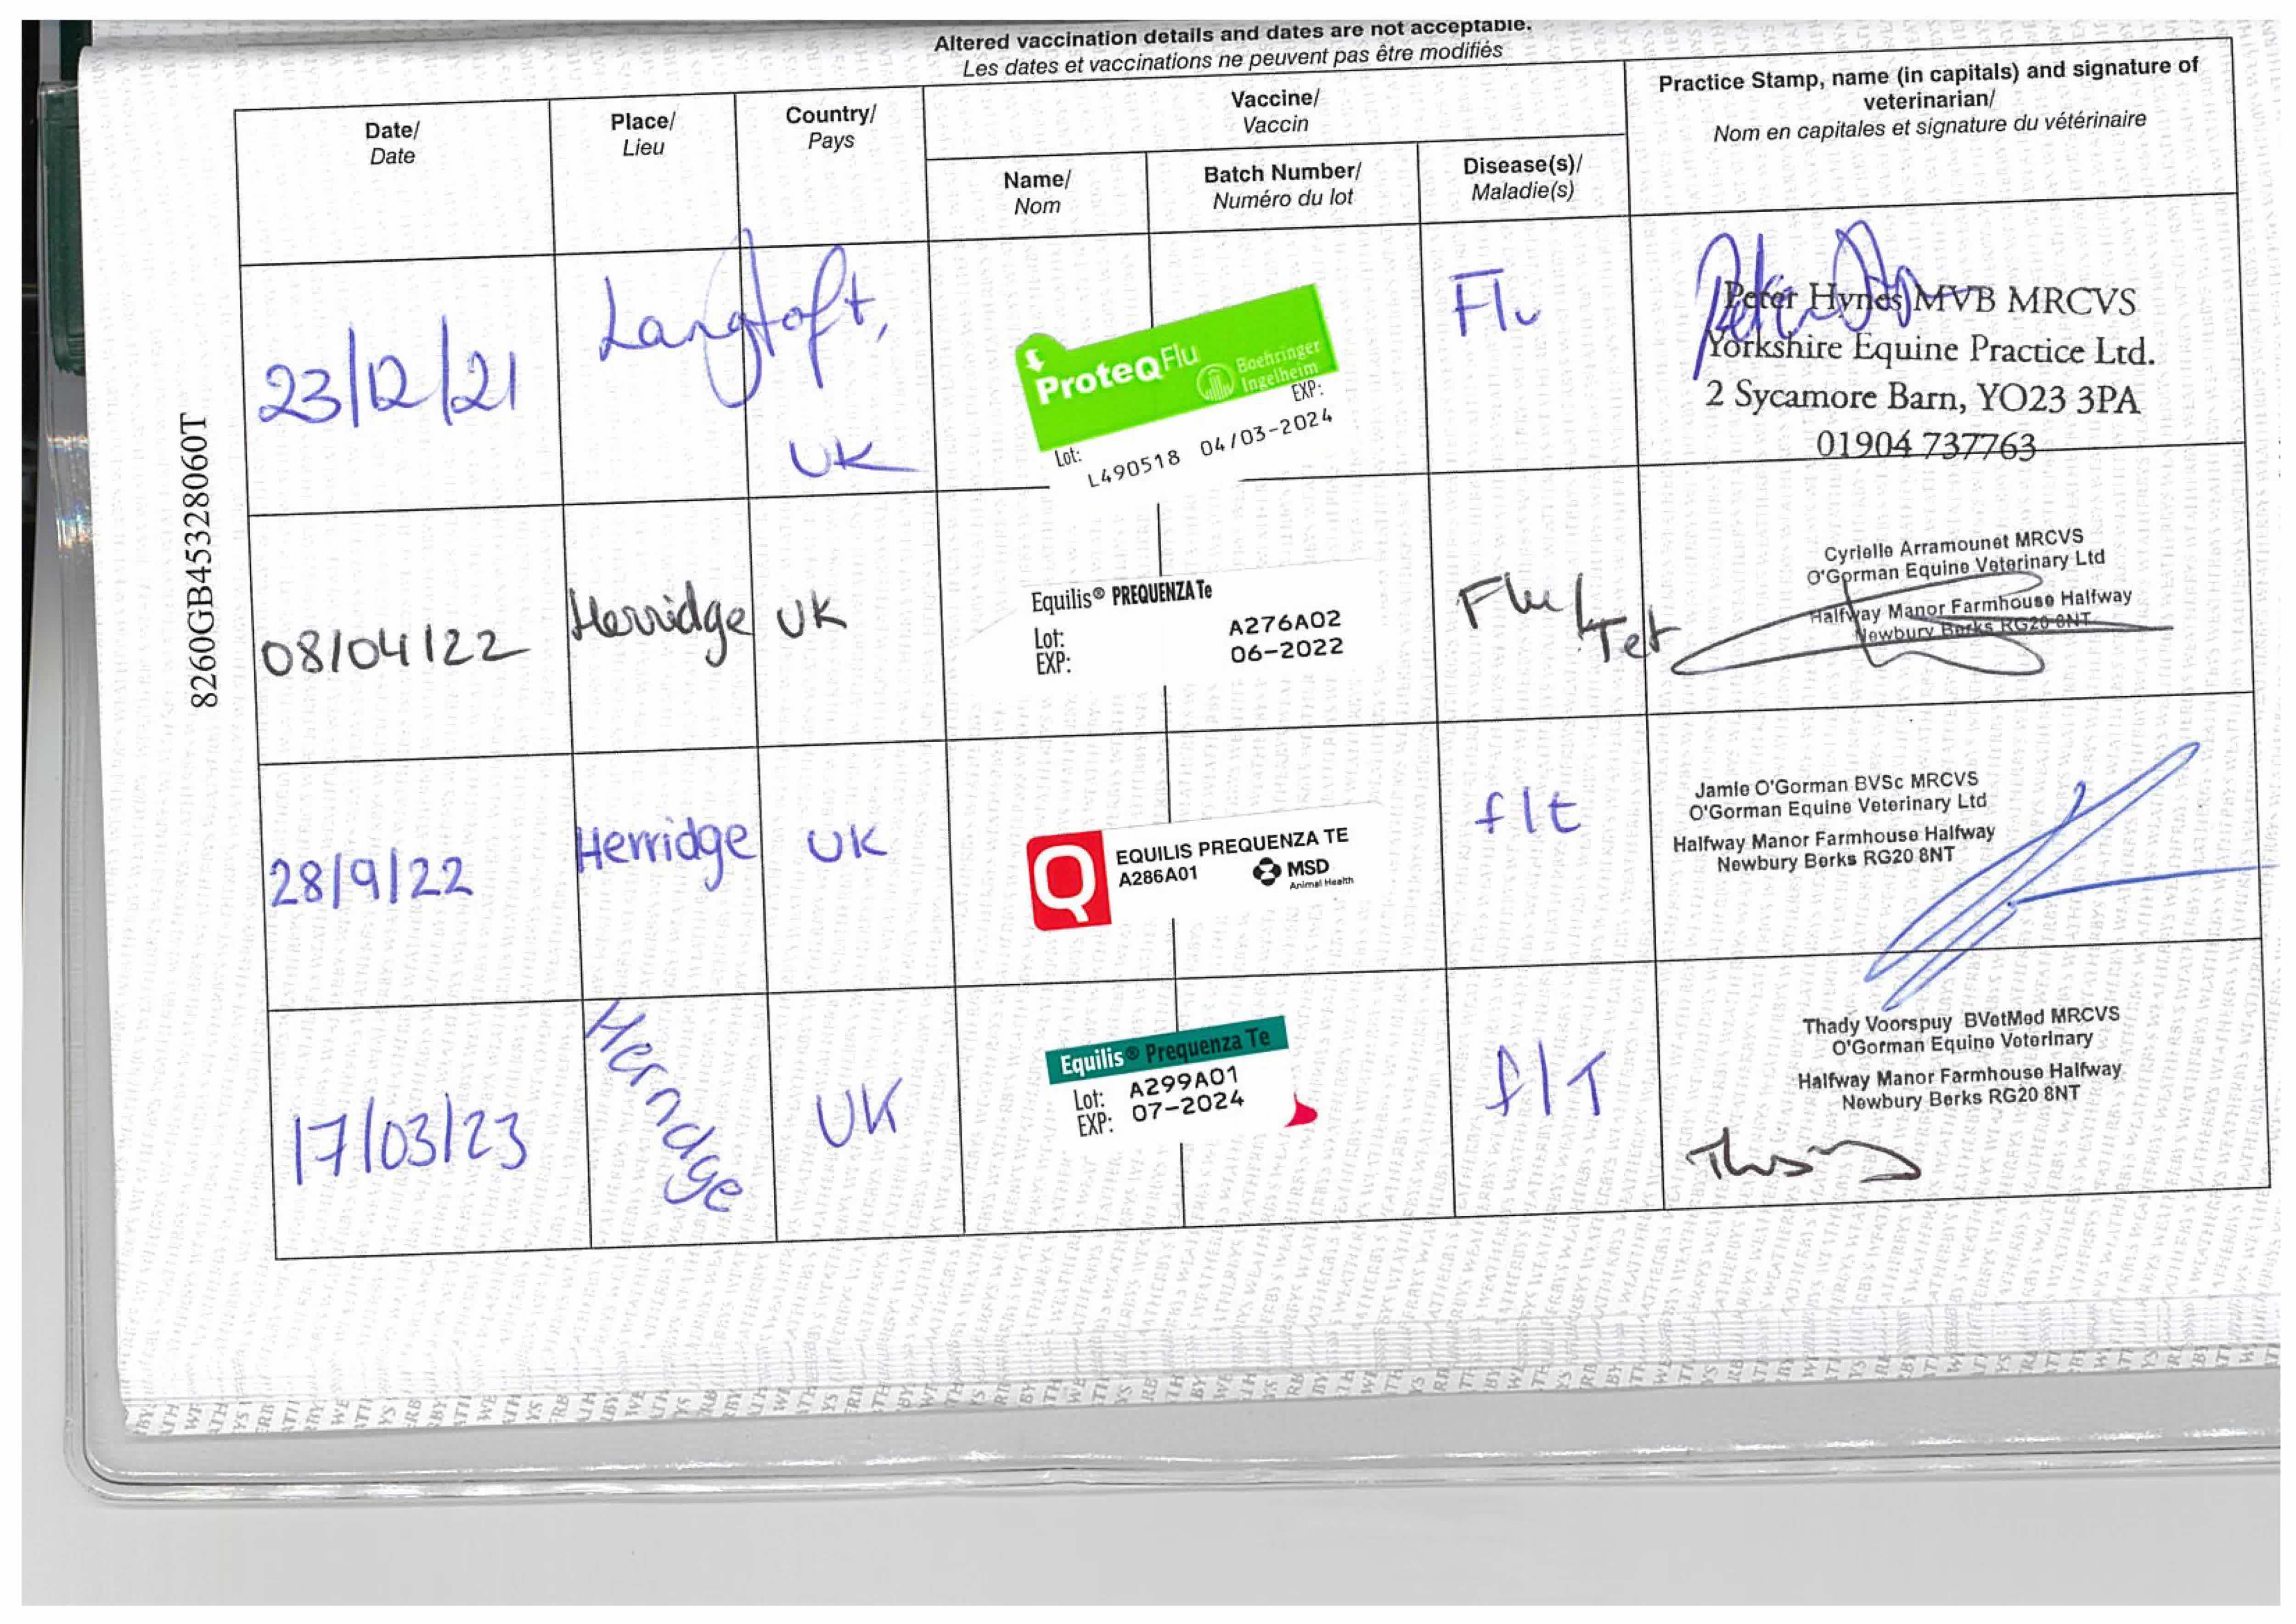 Altered vaccination details and dates are not acceptable.
Les dates et vaccinations ne peuvent pas être modifiés
Date/
Date
Place/
Lieu
Country/
Pays
Vaccine/
Vaccin
Name/
Nom
Batch Number/
Numéro du lot
Disease(s)/
Maladie(s)
Practice Stamp, name (in capitals) and signature of
veterinarian/
Nom en capitales et signature du vétérinaire
8260GB45328060T
23/12/21
Langtoft,
UK
ProteqFlu
Boehringer
Ingelheim
EXP:
Lot:
L490518 04/03-2024
Flu
Peter Hynes MVB MRCVS
Yorkshire Equine Practice Ltd.
2 Sycamore Barn, YO23 3PA
01904 737763
08/04/22
Herridge
UK
Equilis® PREQUENZA Te
Lot: A276A02
EXP: 06-2022
Flu/Tet
Cyrielle Arramounet MRCVS
O'Gorman Equine Veterinary Ltd
Halfway Manor Farmhouse Halfway
Newbury Berks RG20 8NT
28/9/22
Herridge
UK
Q
EQUILIS PREQUENZA TE
A286A01
MSD
Animal Health
f/t
Jamie O'Gorman BVSc MRCVS
O'Gorman Equine Veterinary Ltd
Halfway Manor Farmhouse Halfway
Newbury Berks RG20 8NT
17/03/23
Herridge
UK
Equilis® Prequenza Te
Lot: A299A01
EXP: 07-2024
f/T
Thady Voorspuy BVetMed MRCVS
O'Gorman Equine Veterinary
Halfway Manor Farmhouse Halfway
Newbury Berks RG20 8NT